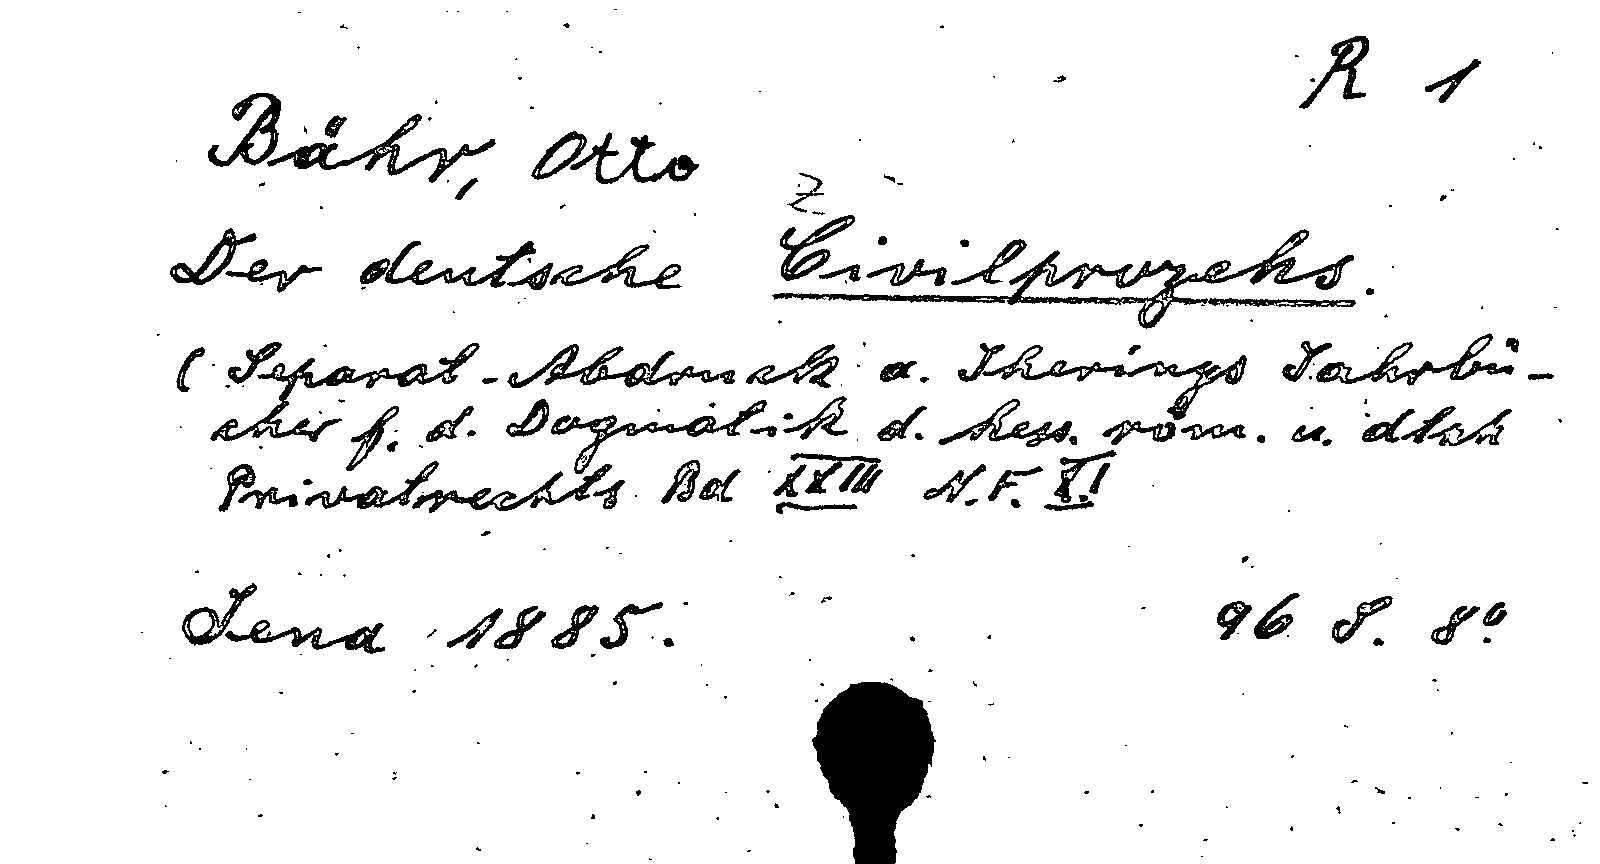 R 1
Bähr, Otto
Z
Der deutsche Civilprozehs.
(Separat-Abdruck a. Iherings Jahrbü-
cher f. d. Dogmatik d. hess. röm. u. dtsch
Privatrechts Bd XXIII N.F. XI
Jena 1885. 96 S. 8°.